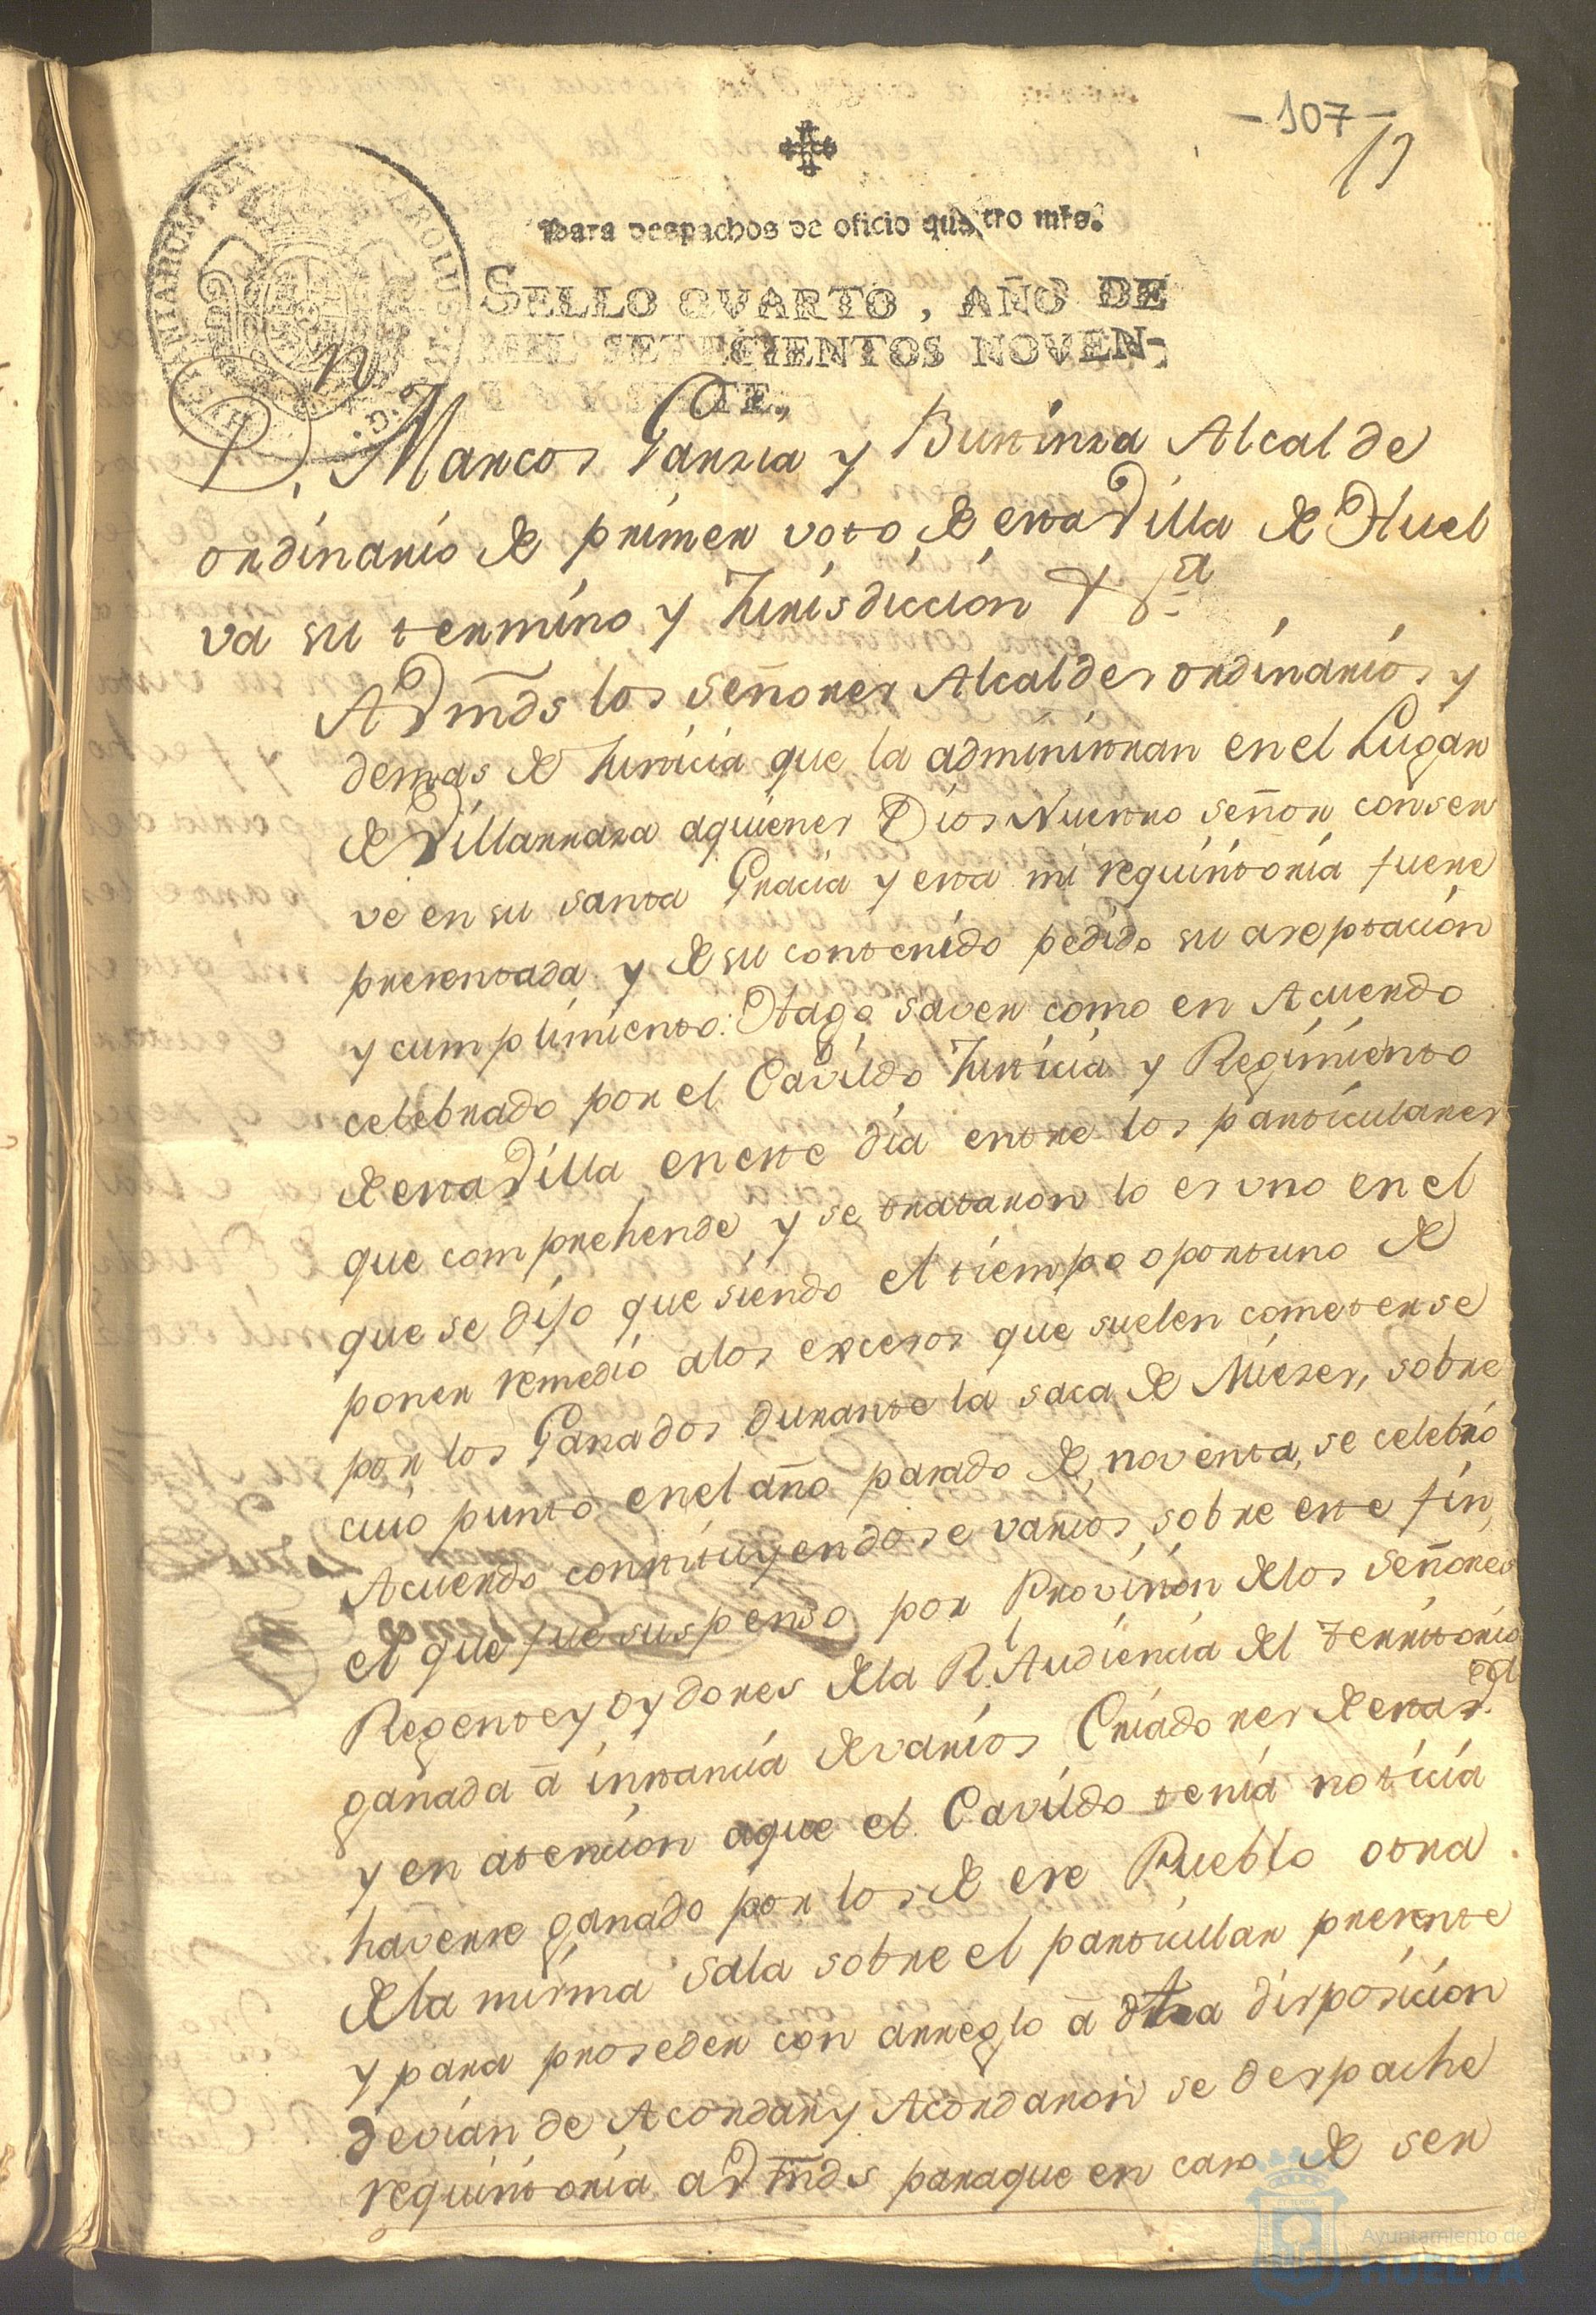 - 107 -
Para despachos de oficio quatro mrs.
SELLO QVARTO, AÑO DE
MIL SETECIENTOS NOVEN-
TA Y SIETE.
HISPANIARUM REX
CAROLUS IV D. G.
Dn. Marcos Garzia y Alcalde
ordinario de primer voto de esta Villa de Huel
va su termino y Jurisdiccion &a
A Vmds los señores Alcaldes ordinarios y
demas de Justicia que la administran en el Lugar
de Villarrasa aquienes Dios Nuestro señor conser
ve en su santa Gracia y esta mi requisitoria fuere
presentada y de su contenido pedido su aseptacion
y cumplimiento: Hago saver como en Acuerdo
celebrado por el Cavildo Justicia y Regimiento
de esta Villa en este dia entre los particulares
que comprehende y se trataron lo es uno en el
que se dijo que siendo el tiempo oportuno de
poner remedio alos excesos que suelen cometerse
por los Ganados durante la saca de Mieses, sobre
cuio punto en el año pasado de noventa, se celebró
Acuerdo constituyendose varios sobre este fin,
el que fue suspenso por Provision delos señores
Regente y Oydores dela Rl. Audiencia del territorio
ganada â instancia de varios Criadores de esta Vd.
y en atencion aque el Cavildo tenia noticia
haverse ganado por los de ese Pueblo otra
dela misma sala sobre el particular presente
y para proseder con arreglo â dha disposicion
devian de Acordar y Acordaron se despache
requisitoria a Vmds paraque en caso de ser
Ayuntamiento de
HUELVA